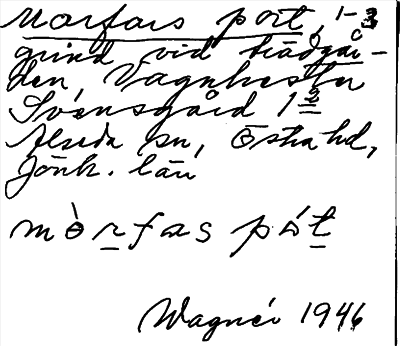 Morfars port, 1-3
grind vid trädgår-
den, Vagnhester
Svensgård 1 2/
Alseda sn, Östra hd,
Jönk. län
mòrfas pót
Wagnér 1946